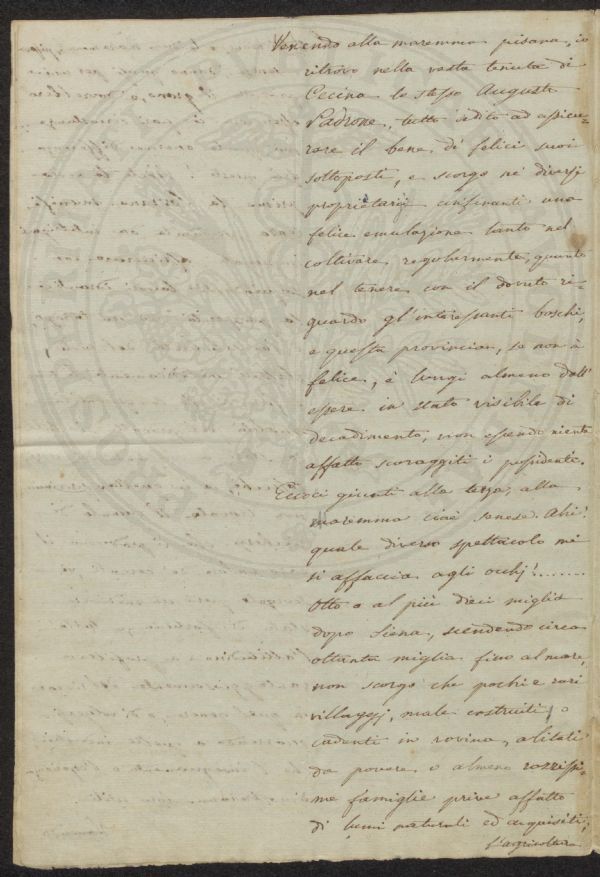 Venendo alla maremma pisana, io
ritrovo nella vasta tenuta di
Cecina lo stesso Augusto
Padrone, tutto dedito ad assicu-
rare il bene di felici suoi
sottoposti, e scorgo ne' diversi
proprietarj confinanti una
felice emulazione tanto nel
coltivare regolarmente, quanto
nel tenere con il dovuto ri-
guardo gl'interessanti boschi,
e questa provincia, se non è
felice, è lungi almeno dall'
essere in stato visibile di
decadimento, non essendo niente
affatto scoraggiti i possidenti.
Eccoci giunti alla terza, alla
maremma cioè senese. Ahi!
quale diverso spettacolo mi
si affaccia agli occhj!........
Otto o al più dieci miglia
dopo Siena, scendendo circa
ottanta miglia fino al mare,
non scorgo che pochi e rari
villaggj, male costruiti, o
cadenti in rovina, abitati
da povere, o almeno rozzissi-
me famiglie prive affatto
di lumi naturali ed acquisiti;
l'agricoltura